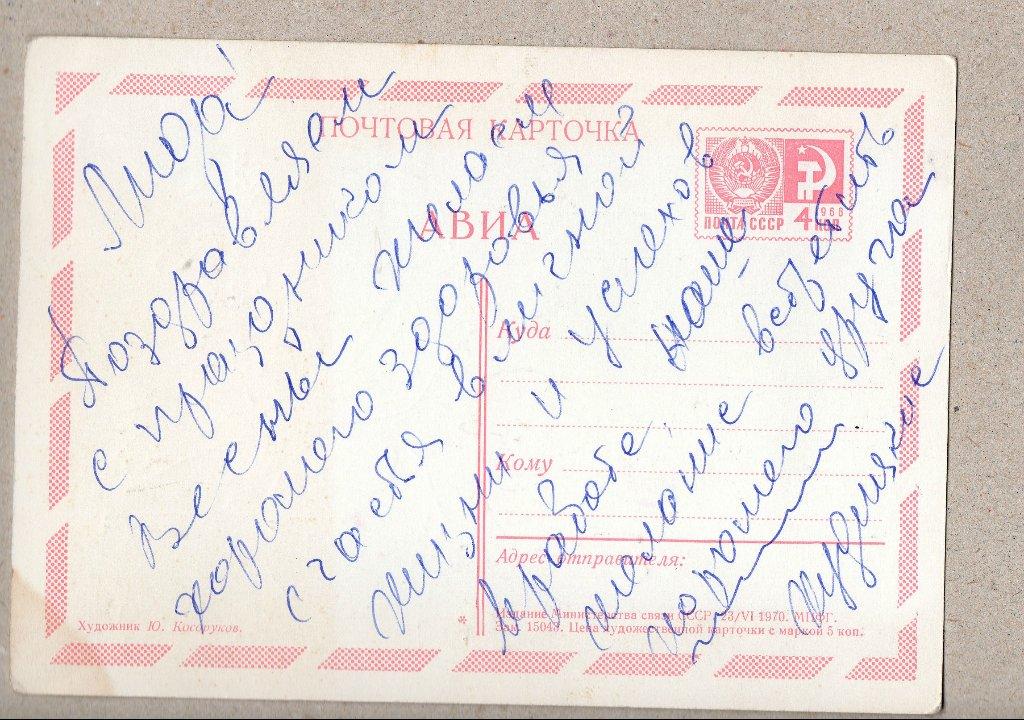 Лиора!
Поздравляем
с праздником
Весны желаем
хорошего здоровья
счастья в личной
жизни и успехов
в работе. наше
желание встретить
хорошего друга
ПОЧТОВАЯ КАРТОЧКА
АВИА
ПОЧТА СССР 4 КОП
1966
Куда
Кому
Адрес отправителя:
Художник Ю. Косоруков.
*
Издание Министерства связи СССР. 23/VI 1970. МПФГ.
Зак. 15048. Цена художественной карточки с маркой 5 коп.